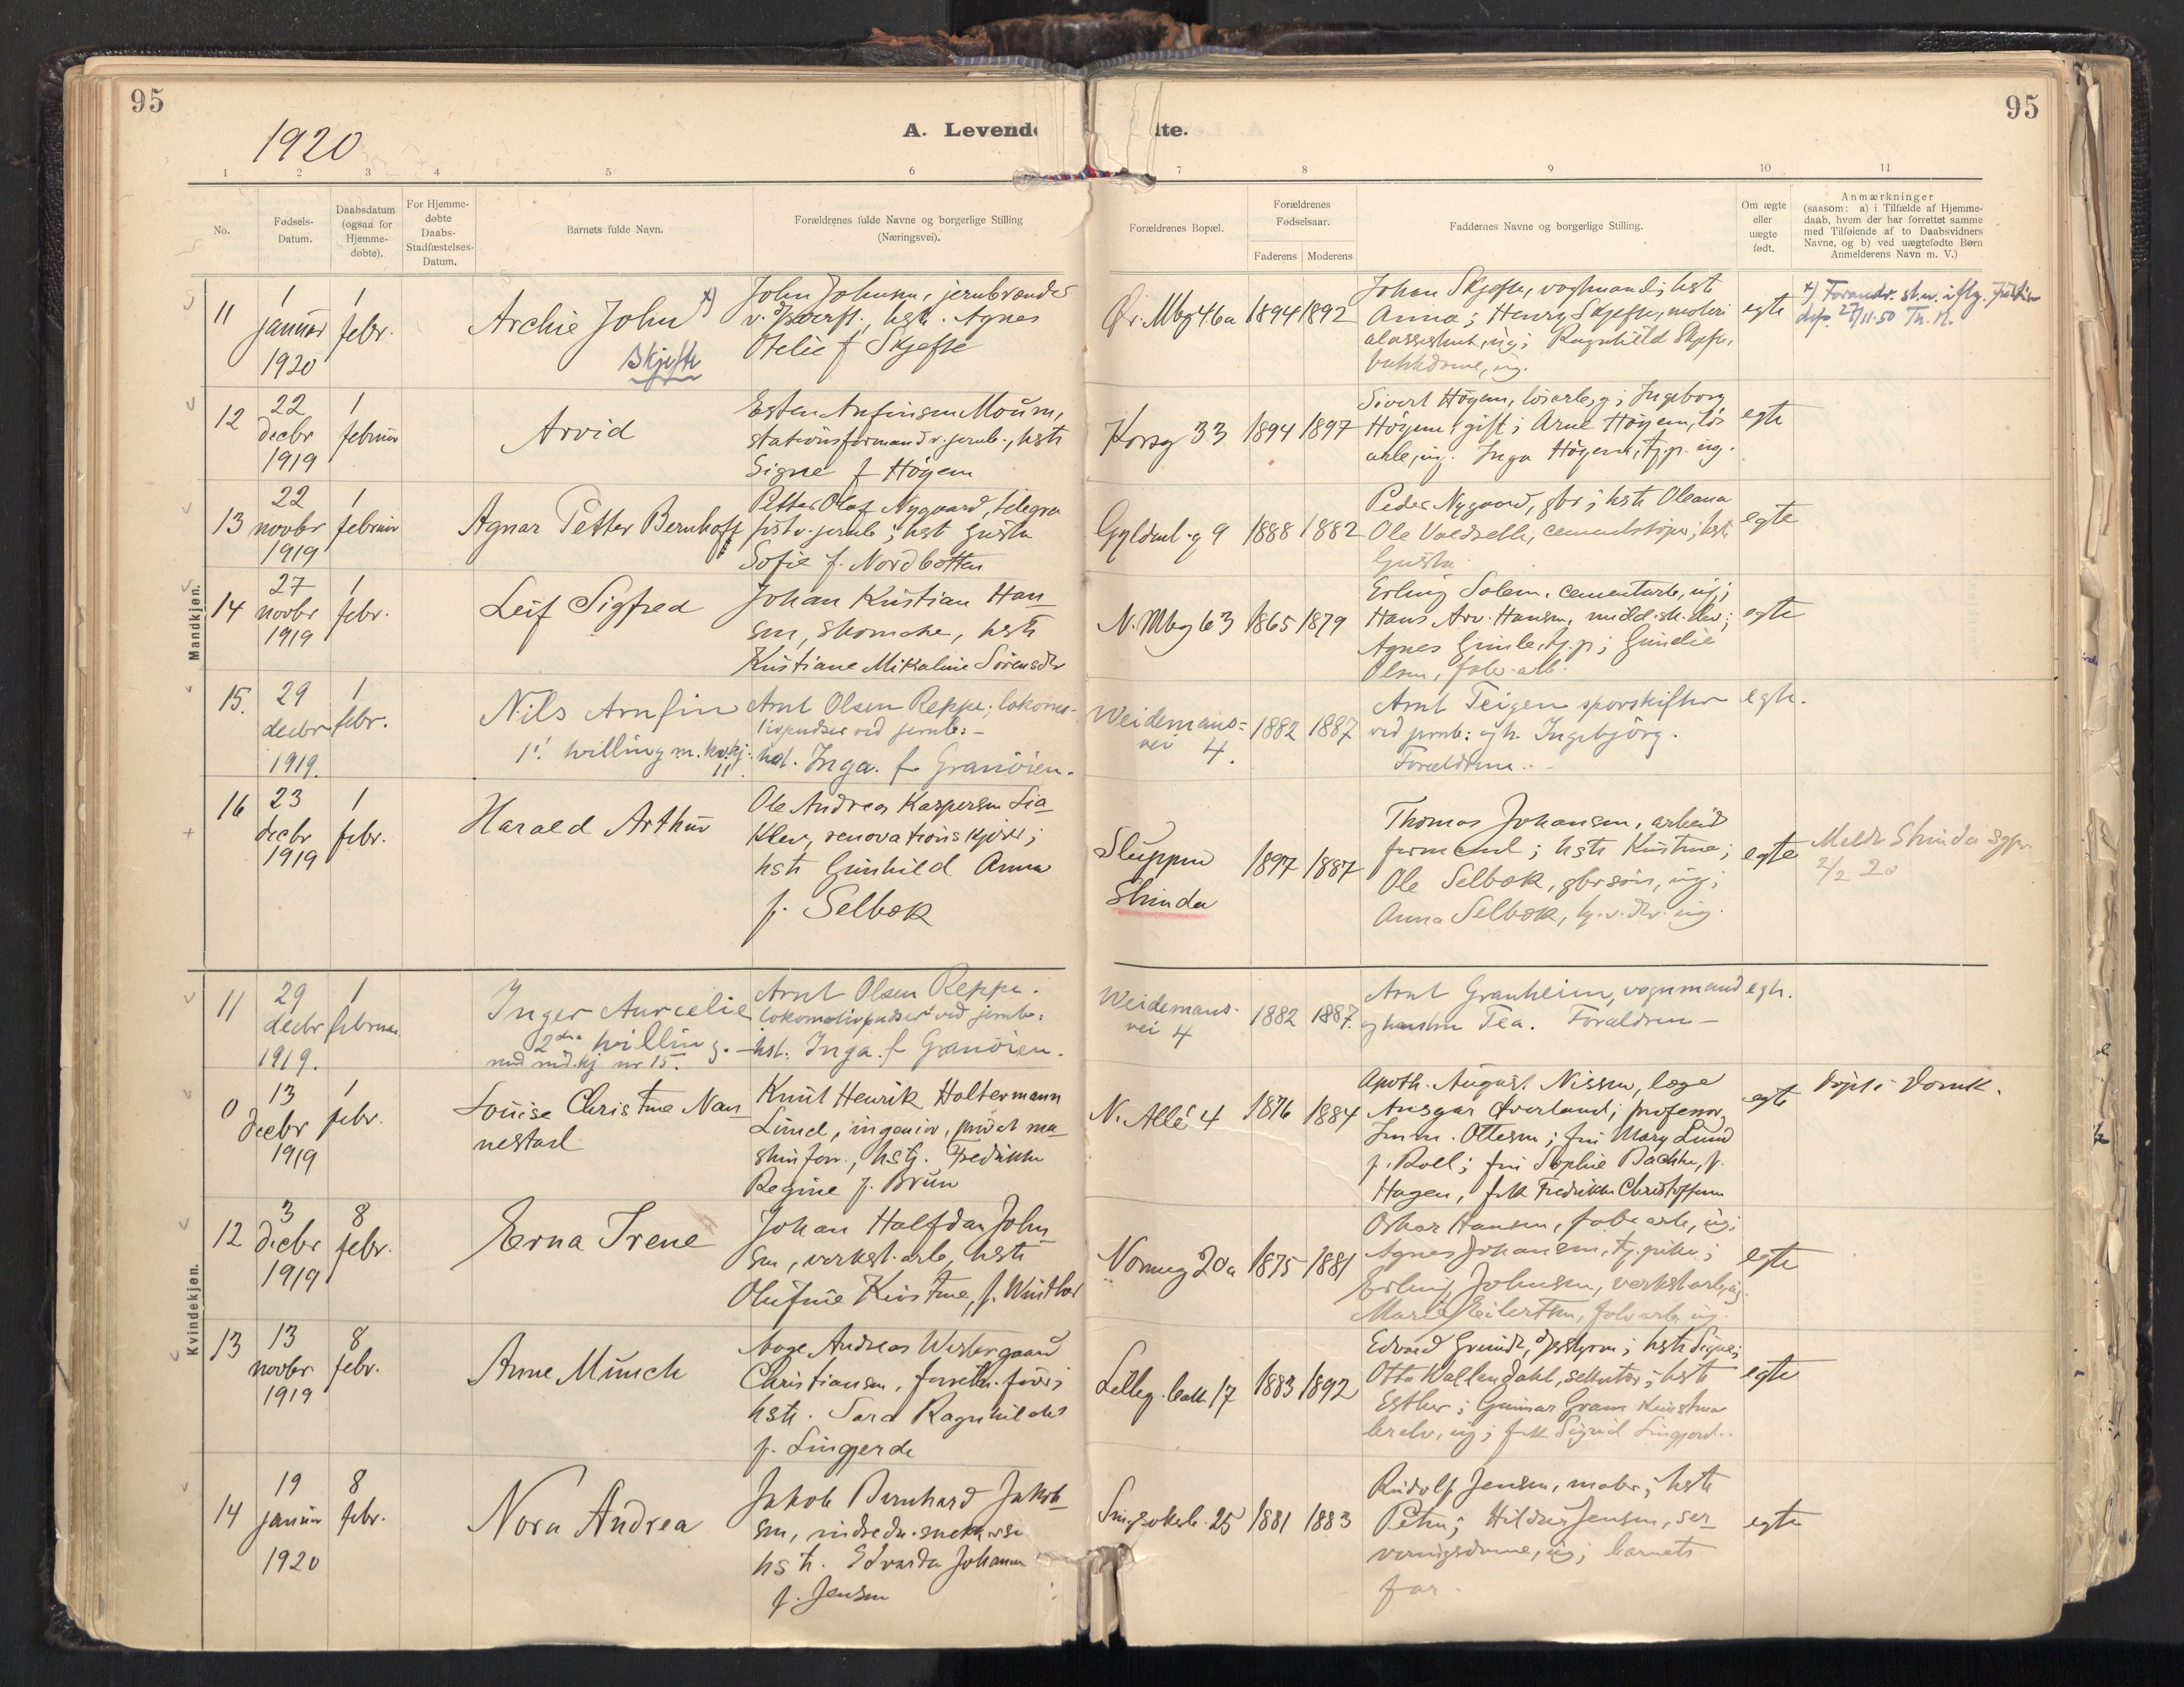 95
95
1920
A. Levende
dte.
1 2 3 4 5 6 7 8 9 10 11
No.
Fødsels-
Datum.
Daabsdatum
(ogsaa for
Hjemme-
døbte).
For Hjemme-
døbte
Daabs-
Stadfæstelses-
Datum.
Barnets fulde Navn.
Forældrenes fulde Navne og borgerlige Stilling
(Næringsvei).
Forældrenes Bopæl.
Forældrenes
Fødselsaar.
Faderens Moderens
Faddernes Navne og borgerlige Stilling.
Om ægte
eller
uægte
født.
Anmærkninger
(saasom: a) i Tilfælde af Hjemme-
daab, hvem der har forrettet samme
med Tilføiende af to Daabsvidners
Navne, og b) ved uægtefødte Børn
Anmelderens Navn m. V.)
Mandkjøn.
11
1
januar
1920
1
febr.
Archie John x)
Skjefte
John Johnsen, jernbrænder
hst. Agnes
Otelie f Skjefte
Ør. Mbg 46a
1894 1892
Johan Skjefte, vognmand; hst
Anna; Henry Skjefte,
ug; Ragnhild Skjefte,
ug.
egte
27/11-50
12
22
decbr
1919
1
februar
Arvid
Esten Anfinsen Moum,
stationsformand v. jernb., hst
Signe f Högem
Korsg 33
1894 1897
Sivert Högem, Ingeborg
Högem gift; Arne Högem, lös
arb, ug. Inga Högem, tj.p. ug.
egte
13
22
novbr
1919
1
februar
Agnar Petter Bernhoff
Petter Olaf Nygaard, telegra
fist v. jernb; hst Gusta
Sofie f. Nordbotten
Gyldenl.g 9
1888 1882
Peder Nygaard, gbr; hst Oleana
Ole Valdsetb, cementstöper; hst
Gusta
egte
14
27
novbr
1919
1
febr.
Leif Sigfred
Johan Kristian Han-
sen, skomaker, hst
Kristiane Mikaline Sörensdtr
N. Mbg 63
1865 1879
Erling Solem, cementarb, ug;
Hans Arv. Hansen, midd.sk.elev;
Agnes Gimle, tj.p; Gundie
Olsen, fabr.arb.
egte
15.
29
decbr
1919.
1
febr.
Nils Arnfin
1! tvilling m. kv.kj. 11
Arnt Olsen Reppe, lokomo-
tivpudser ved jernb: -
hst. Inga f Granöien.
Weidemans-
vei 4.
1882 1887
Arnt Teigen sporskifter
ved jernb: og h. Ingebjörg.
Forældrene.
egte.
16
23
decbr
1919
1
febr.
Harald Arthur
Ole Andreas Kaspersen Lia-
klev, renovationskjører;
hst Gunhild Anna
f. Selbæk
Sluppen
Strinda
1897 1887
Thomas Johansen, arbeids
formand; hst Kristine;
Ole Selbæk, gbr sön, ug;
Anna Selbæk, ug.
egte
Meldt Strinda sgpr.
2/2 20
Kvindekjøn.
11
29
decbr
1919.
1
februar
Inger Aurelie
2den tvilling. -
med md.kj nr 15.
Arnt Olsen Reppe.
lokomotivpudser ved jernb:
hst: Inga f Granöien.
Weidemans-
vei 4
1882 1887.
Arnt Granheim, vognmand
og hustru Tea. Forældren -
egte.
0
13
decbr
1919
1
febr.
Louise Christine Nan-
nestad
Knut Henrik Holtermann
Lund, ingeniør, privat ma-
skinforr., hst. Fredrikke
Regine f. Brun
N. Allé 4
1876 1884
Apoth. August Nissen, læge
Ansgar Øverland; professor
Imm. Ottesen; fru Mary Lund
f. Roll; fru Sophie Bachke, f.
Hagen, frk Fredrikke Christoffersen
egte
döpt i Domk.
12
3
decbr
1919
8
febr.
Erna Irene
Johan Halfdan John-
sen, verkst.arb, hst
Olufine Kristine, f. Winther
Vonnug 20a
1875 1881
Oskar Hansen, fabr arb, ug;
Agnes Johansen, tj.pike;
Erling Johnsen, verkst arb, ug.
Marie Eilertsen, fabr arb, ug.
egte
13
13
novbr
1919
8
febr.
Anne Münch
Aage Andreas Westergaard
Christiansen, forretn.förer;
hst. Sara Ragnhild
f. Lingjerde
Lilleg. bak. 17
1883 1892
hst Signe;
Otto Wallendahl, sekretær; hst
Esther; Gunnar Gram kunstma
lerelev, ug; frk Sigrid Lingjerde
egte
14
19
januar
1920
8
febr.
Nora Andrea
Jakob Bernhard Jakob-
sen,
hst. Edvarda Johanne
f. Jensen
Singsakerb. 25
1881 1883
Rudolf Jensen, maler; hst
Petra; Hildur Jensen, ser-
veringsdame, ug; barnets
far.
egte